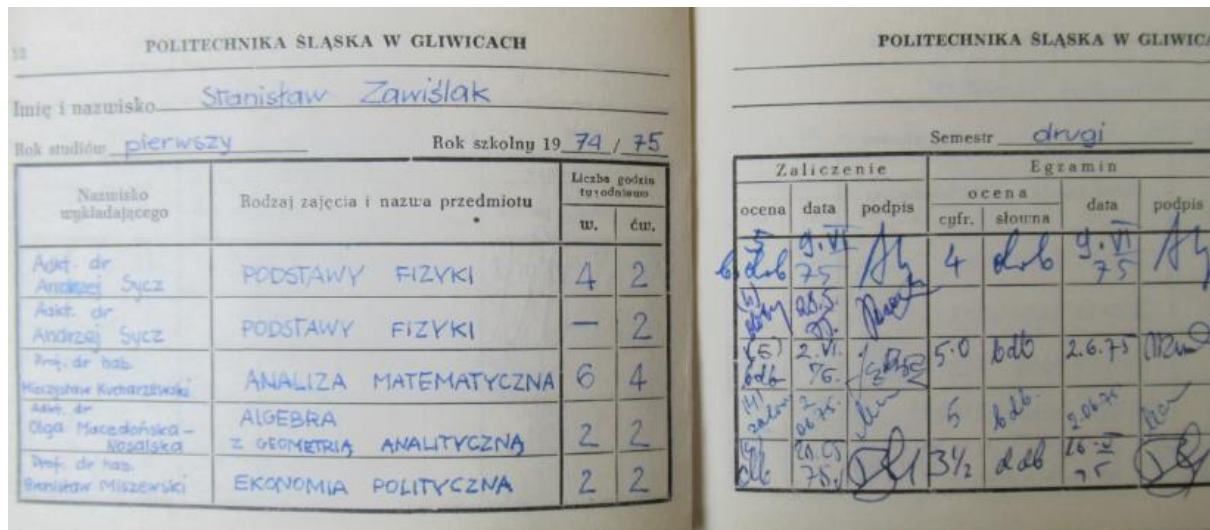 12
POLITECHNIKA ŚLĄSKA W GLIWICACH
Imię i nazwisko Stanisław Zawiślak
Rok studiów pierwszy Rok szkolny 19 74 / 75
Nazwisko wykładającego
Rodzaj zajęcia i nazwa przedmiotu
Liczba godzin tygodniowo
w. ćw.
Adkt. dr
Andrzej Sycz
PODSTAWY FIZYKI 4 2
Adkt. dr
Andrzej Sycz
PODSTAWY FIZYKI — 2
Prof. dr hab.
Mieczysław Kucharzewski
ANALIZA MATEMATYCZNA 6 4
Adkt. dr
Olga Macedońska-
Nosalska
ALGEBRA
Z GEOMETRIĄ ANALITYCZNĄ 2 2
Prof. dr hab.
Bronisław Miszewski
EKONOMIA POLITYCZNA 2 2
POLITECHNIKA ŚLĄSKA W GLIWICA
Semestr drugi
Zaliczenie Egzamin
ocena data podpis
ocena
cyfr. słowna
data podpis
5 b dob 9.VI 75 4 dob 9.VI 75
(5) bdb 2.VI. 5.0 bdb 2.6.75
5 bdb. 2.06.75
75. 3½ ddb